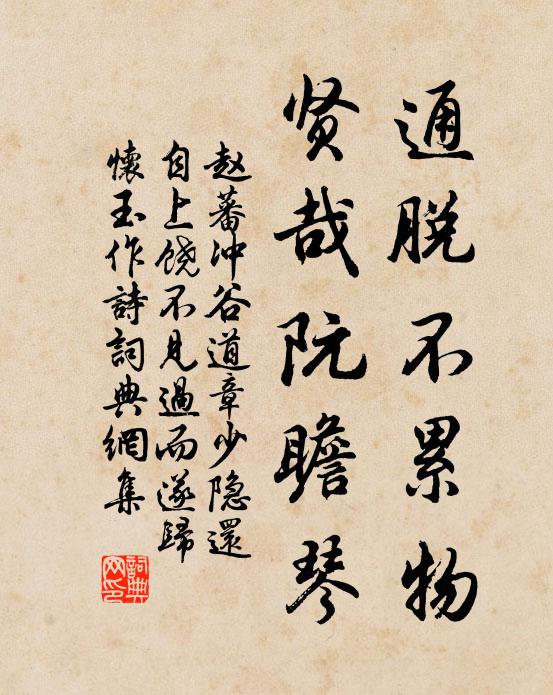 通脱不累物
贤哉阮瞻琴
赵蕃沖谷道章少隐還
自上饶不見過而遂歸
懷玉作詩詞典網集
詞典
网印